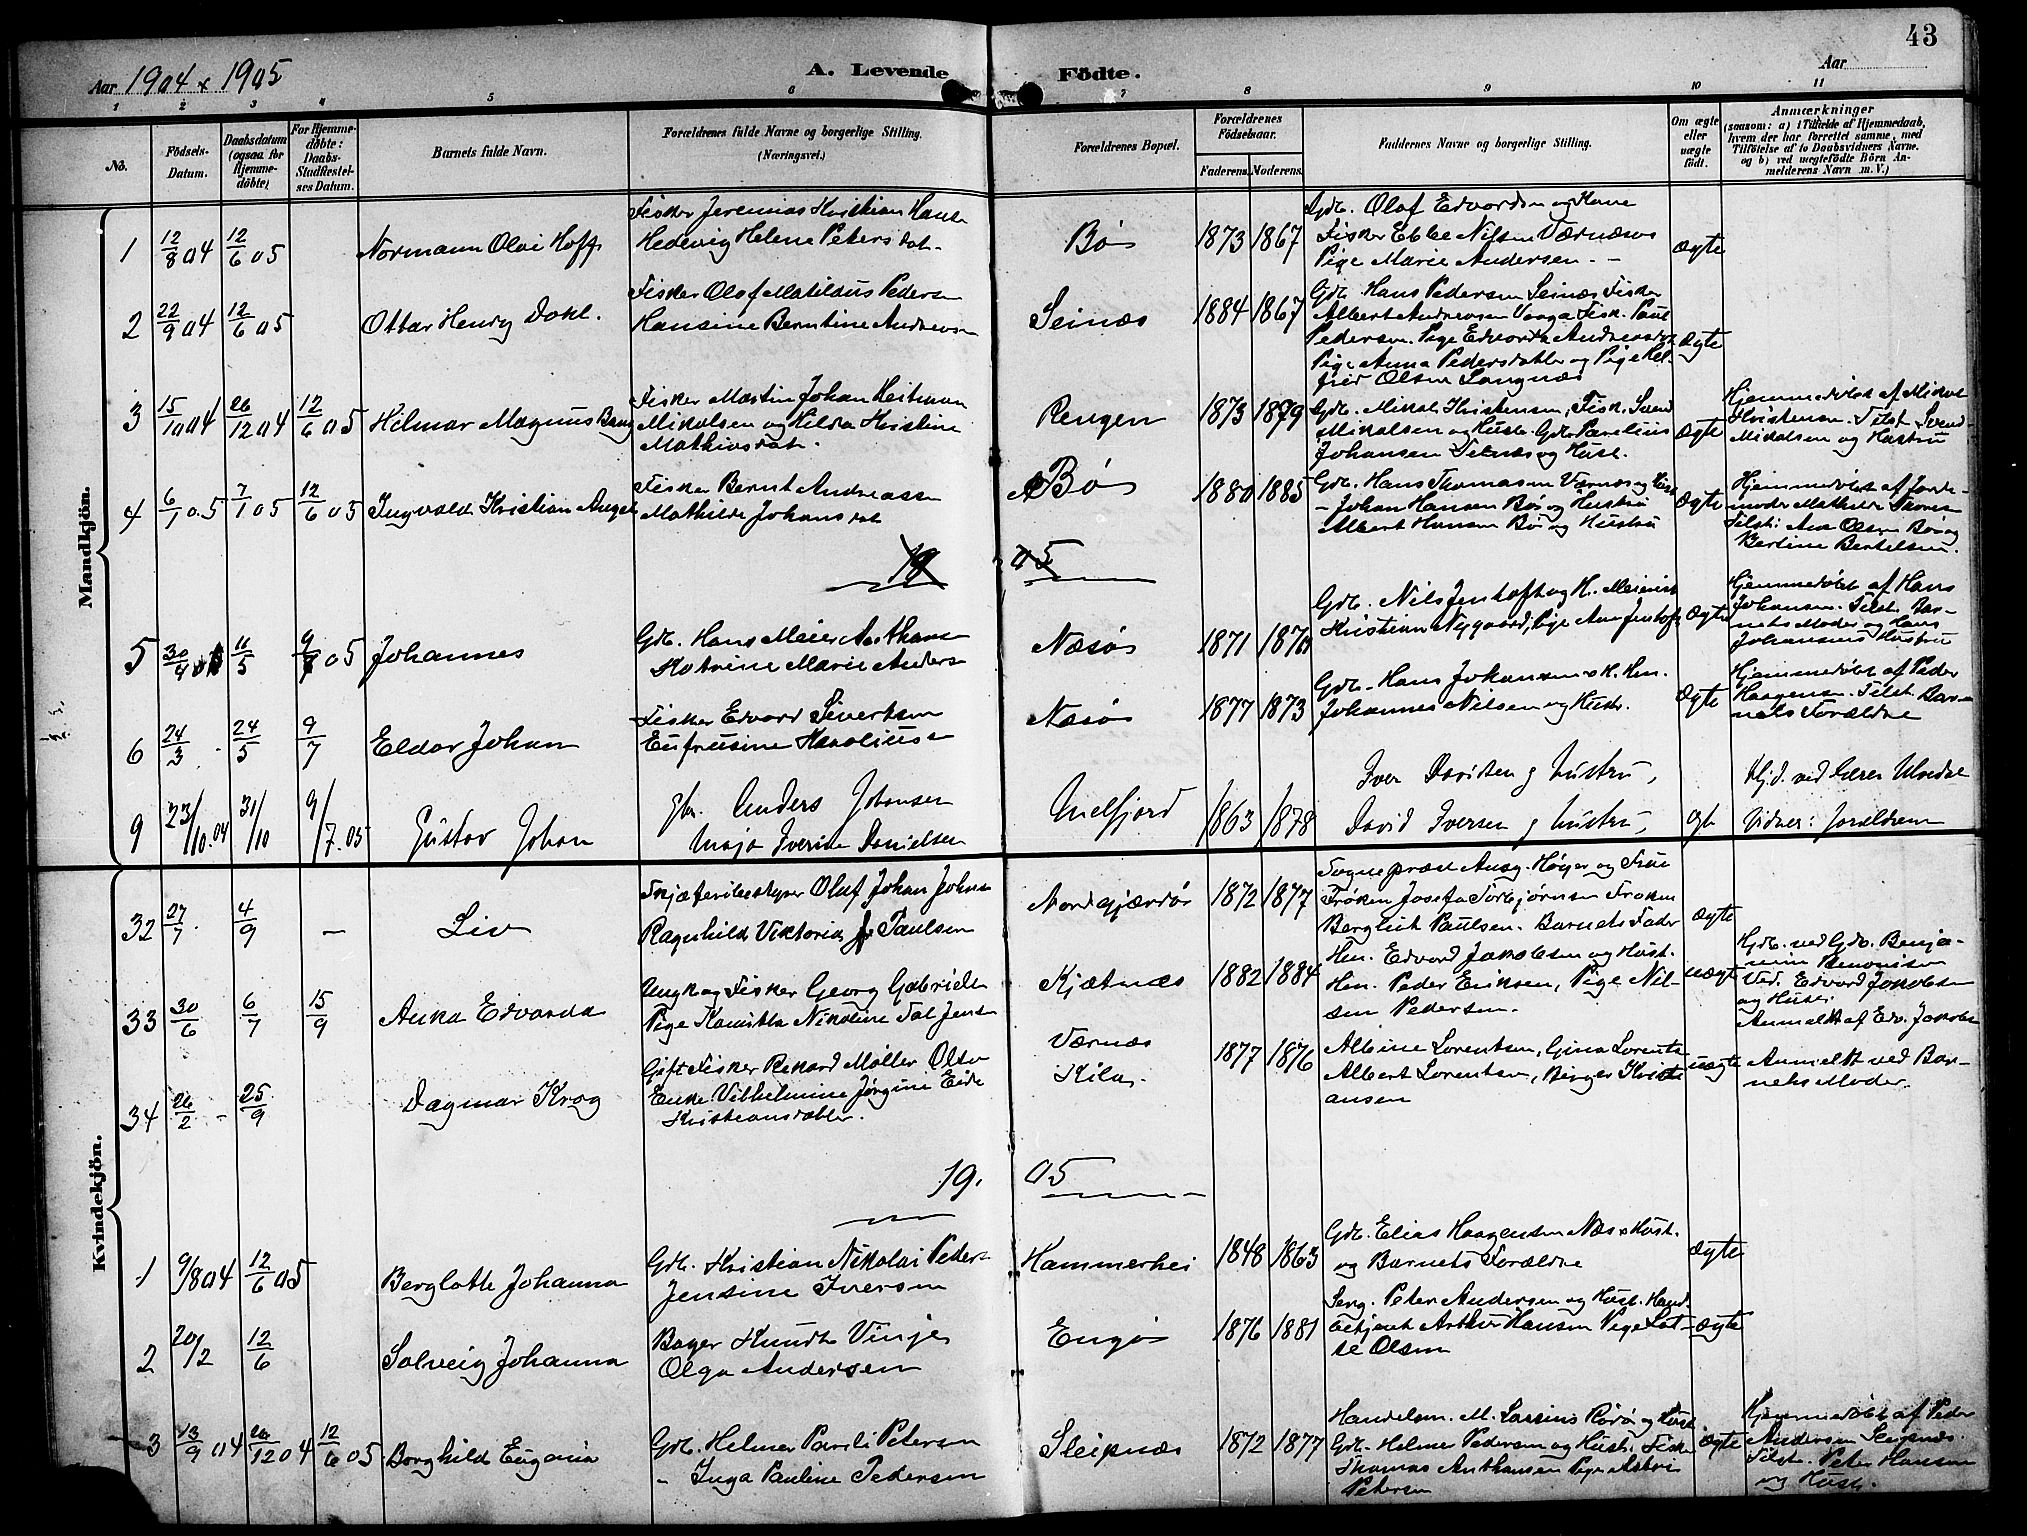 43
Aar 1904 & 1905
A. Levende Födte.
Aar
1 2 3 4 5 6 7 8 9 10 11
No.
Födsels-Datum.
Daabsdatum (ogsaa for Hjemmedöbte)
For Hjemmedöbte: Daabs-Stadfæstelses Datum.
Barnets fulde Navn.
Forældrenes fulde Navne og borgerlige Stilling. (Næringsvei.)
Forældrenes Bopæl.
Forældrenes Födselsaar.
Faderens. Moderens.
Faddernes Navne og borgerlige Stilling.
Om ægte eller uægte födt.
Anmærkninger
(saasom: a) i Tilfælde af Hjemmedaab, hvem der har forrettet samme, med Tilföielse af to Daabsvidners Navne, og b) ved uægtefödte Börn Anmelderens Navn m. V.)
Mandkjön.
1 12/8 04 12/6 05 Normann Olai Hoff
Fisker Jeremias Kristian Hanse
Hedevig Helene Petersdat.
Bø 1873 1867
Gdb. Olaf Edvardsen og Kone
Fisker Ebbe Nilsen Værnæs
Pige Marie Andersen. -
ægte
2 22/9 04 12/6 05 Ottar Henry Dahl.
Fisker Olaf Matildus Peders
Hansine Berntine Andreas
Seinæs 1884 1867
Gdb. Hans Pedersen Seinæs Fisker
Albert Andreasen Vaaga Fisk. Paul
Pedersen. Pige Edvarda Andreasdat
Pige Anna Pedersdatter og Pige Helfrid Olsen Langnæs
ægte
3 15/10 04 26/12 04 12/6 05 Hilmar Magnus Bang
Fisker Martin Johan Heitman
Mikalsen og Hilda Kristine
Mathiasdat.
Rengen 1873 1879
Gdb. Mikal Kristensen, Fisk. Svend
Mikalsen og Hust. Gdb. Parelius
Johansen Selnæs og Hust.
ægte
Hjemmedöbt af Mikal
Kristensen. Tilst. Svend
Mikalsen og Hustru
4 6/1 05 7/1 05 12/6 05 Ingvald Kristian Angel
Fisker Bernt Andreassen
Mathilde Johansdat
Bø 1880 1885
Gdb. Hans Thomasen Værnæs og Hust
- Johan Hansen Bø og Hustru
Albert Hansen Bø og Hustru
ægte
Hjemmedöbt af Jordemoder Mathilde Thomes
Tilst: Ane Olsen Bø og
Bertine Bertelsen.
19 05
5 30/4 05 11/5 9/7 05 Johannes
Gdb. Hans Meier Anthons
Katrine Marie Anders
Næsø 1871 1870
Gdb. Nils Jenhoft og H. Meinert
Kristian Nygaard, Pige Ane Jenhoft
ægte
Hjemmedöbt af Hans
Johansen. Tilst. Barnets Moder og Hans
Johansens Hustru
6 24/3 24/5 9/7 Eldar Johan
Fisker Edvard Sivertsen
Eufrusine Karoliuse
Næsø 1877 1873
Gdb. Hans Johansen & H. Hm.
Johannes Nilsen og Hustr.
ægte
Hjemmedöbt af Peder
Haagensen. Tilst. Barnets Forældre
9 23/10.04 31/10 9/7.05 Gustav Johan
Gbr. Anders Johansen
Maja Iverine Danielsen
Melfjord 1863 1878
Iver Davidsen og hustru,
David Iversen og hustru,
Hj.d. ved lærer Ulvedal
Vidner: forældrene
Kvindekjön.
32 27/7. 4/9 - Liv
Skjæferibestyrer Oluf Johan Johns
Ragnhild Viktoria Paulsen
Nordgjærdø 1872 1877
Sogneprest Aug. Høyer og Frue
Frøken Josefa Torbjørnsen Frøken
Bergliot Paulsen. Barnets Fader
ægte
33 30/6 6/7 15/9 Anna Edvarda
Ungk og Fisker Georg Gabriels
Pige Kamilla Nikoline Jens
Kjætnæs 1882 1884
Hm. Edvard Jakobsen og Hust.
Hm. Peder Eriksen, Pige Nilsen Pedersen.
uægte
Hjdb. ved Gdb. Benjamin Benonisen
Ved. Edvard Jakobsen
og Hustr.
Anmeldt af Edv. Jakobs
34 26/2 - 25/9 Dagmar Krog
Gift Fisker Rikard Møller Olse
Enke Vilhelmine Jørgine Eide
Kristiansdatter.
Værnæs
Kila. 1877 1876
Albine Lorentsen, Gina Lorents
Albert Lorentsen, Birger Kristiansen
uægte
Anmeldt ved Barnets Moder.
19. 05
1 9/8 04 12/6 05 Berglotte Johanna
Gdb. Kristian Nikolai Peders
Jensine Iversen
Hammerhei 1848 1863
Gdb. Elias Haagensen Næs & Hust.
og Barnets Forældre
ægte
2 20/2 12/6 Solveig Johanna
Bager Knudt Vinje
Olga Andersen
Engø 1876 1881
Peter Andersen og Hust. Handbetjent Arthur Hansen Pige Lotte Olsen
ægte
3 13/9 04 26/12 04 12/6 05 Borghild Eugenia
Gdb. Helmer Pareli Petersen
- Inga Pauline Pedersen
Sleipnæs 1872 1877
Handelsm. M. Lassins Rørø og Hust
Gdb. Helmer Pedersen og Hustr. Fisker
Thomas Anthonsen Pige Astri
Petersen
ægte
Hjemmedöbt af Peder
Andersen Sleipnæs.
Tilst. Peter Hansen
og Hustr.